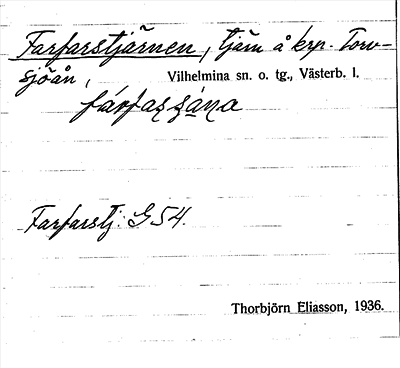 Farfarstjärnen, tjärn å krp. Torv-
sjöån, Vilhelmina sn. o. tg., Västerb. l.
Farfarstj. G 54.
Thorbjörn Eliasson, 1936.